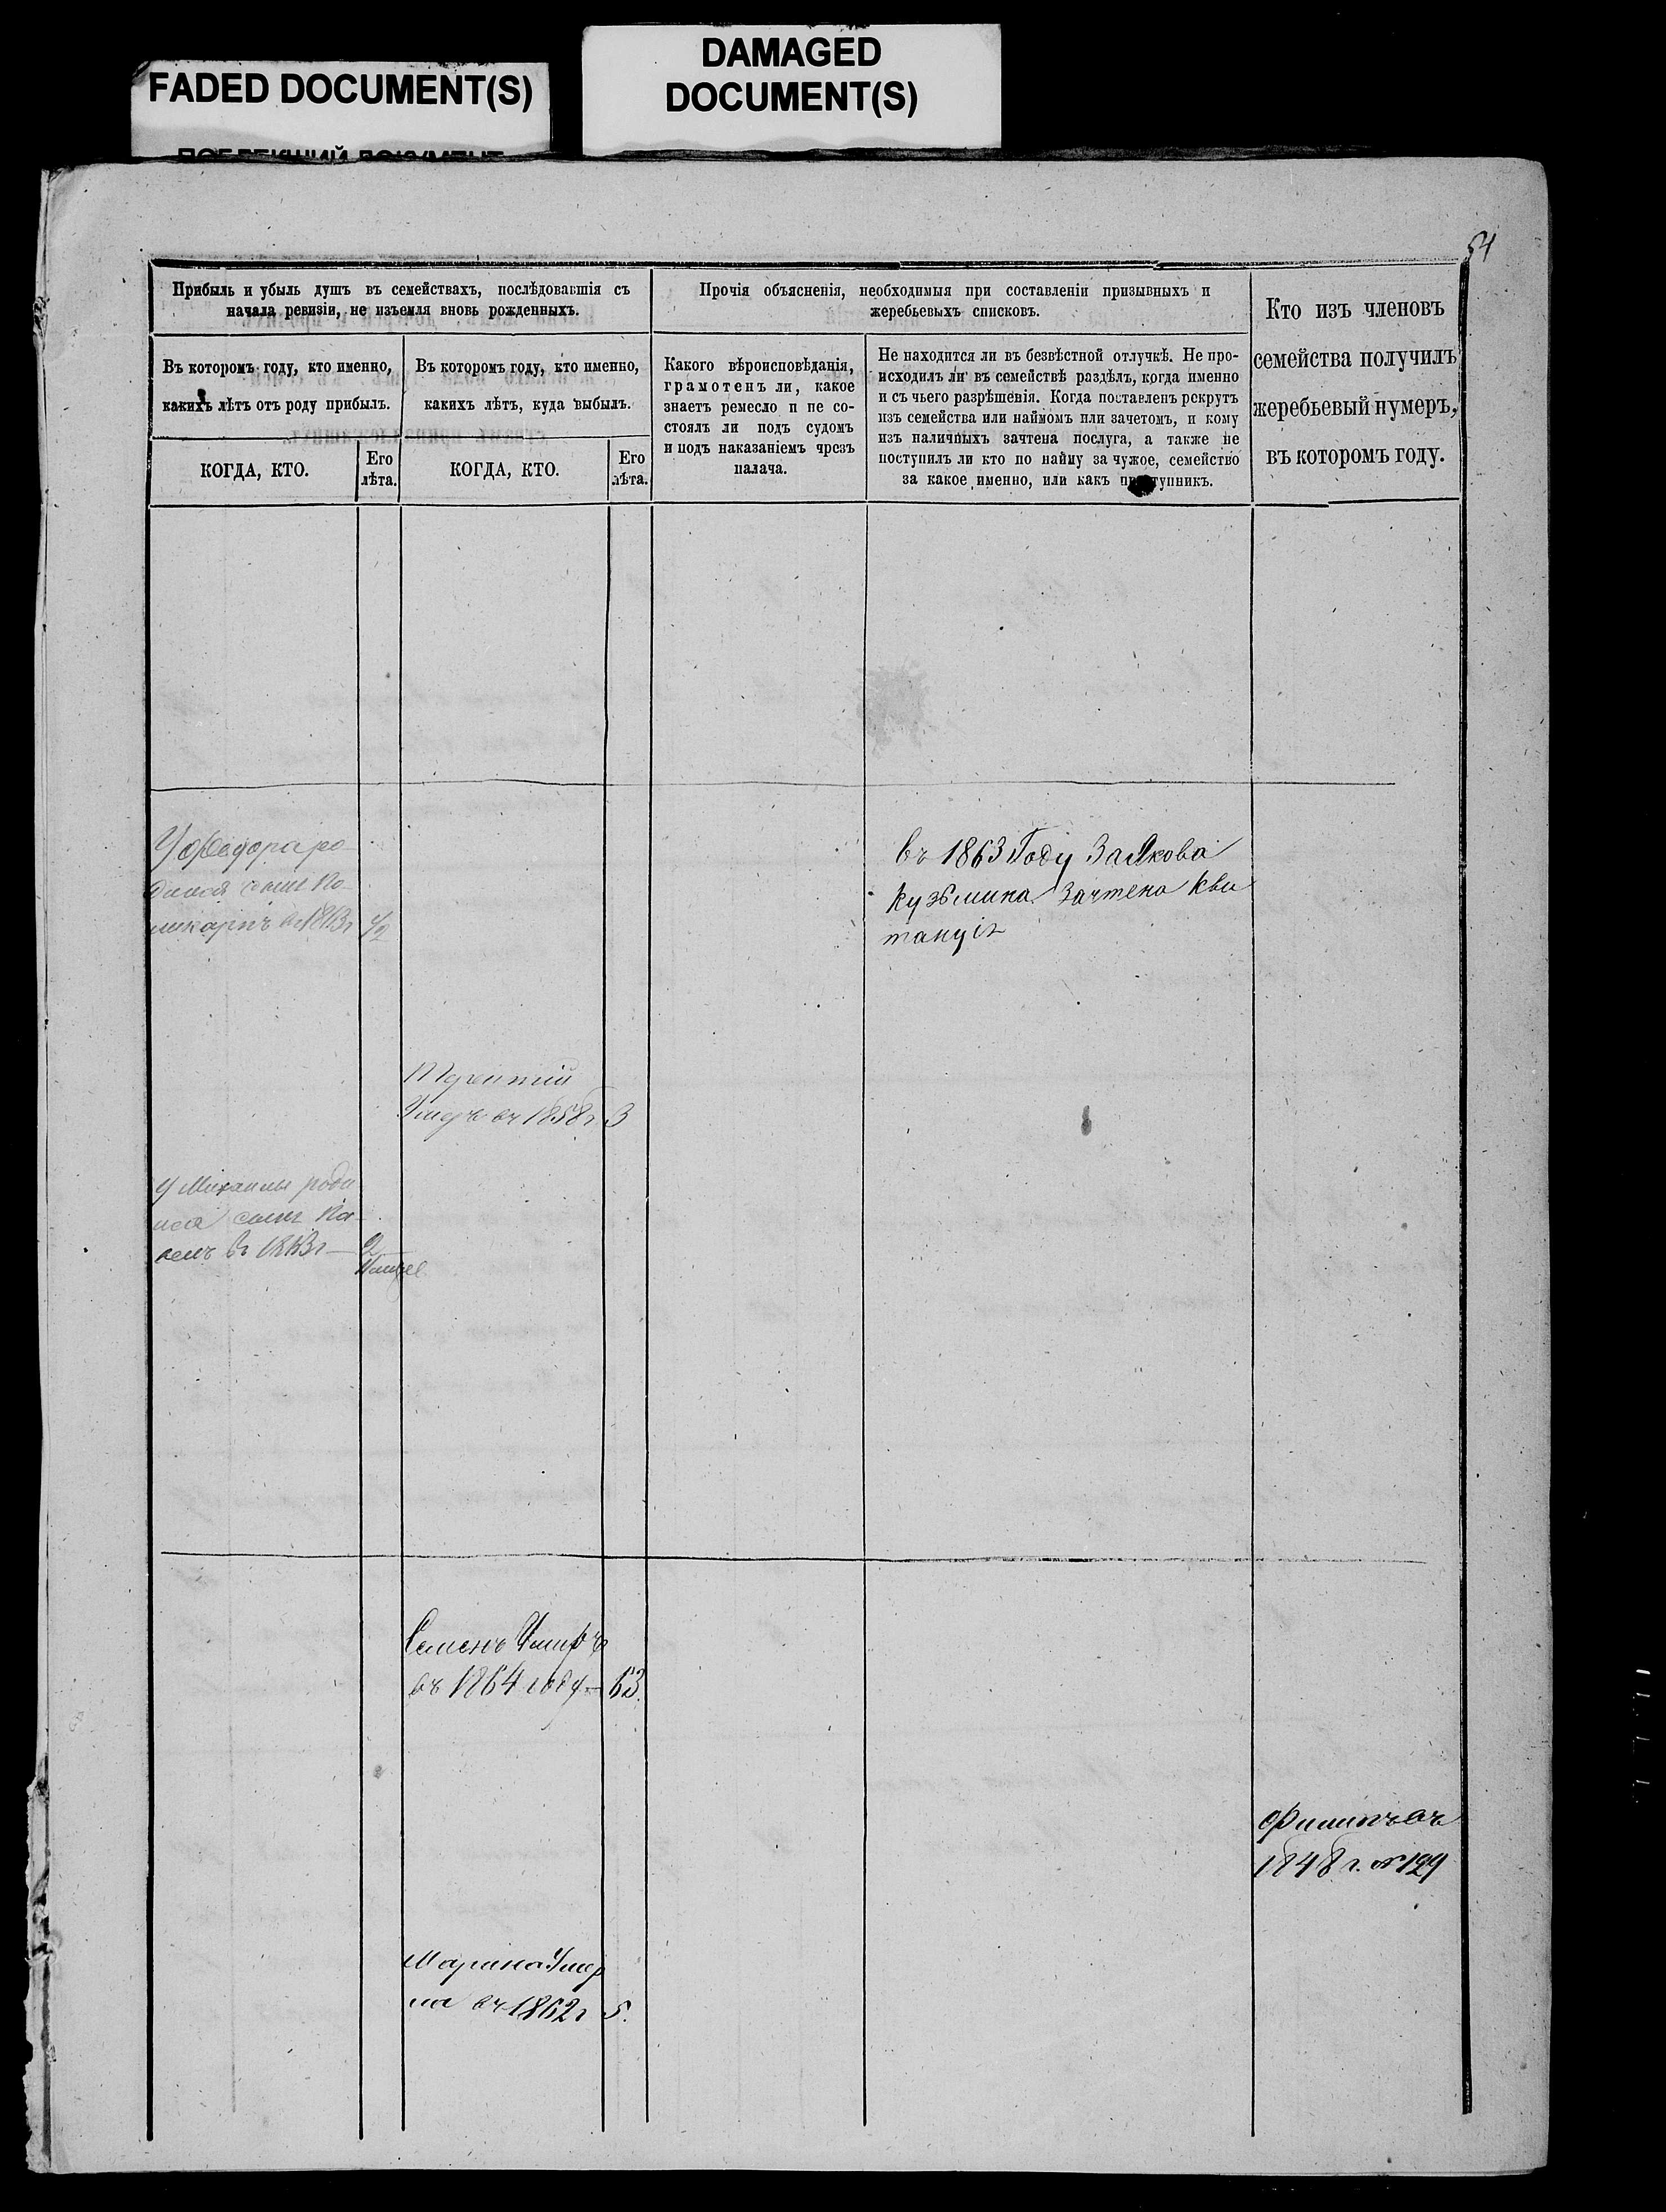 FADED DOCUMENT(S)
DAMAGED
DOCUMENT(S)
54
Прибыль и убыль душъ въ семействахъ, послѣдовавшія съ
начала ревизіи, не изъемля вновь рожденныхъ.
Въ которомъ году, кто именно,
какихъ лѣтъ отъ роду прибылъ.
Въ которомъ году, кто именно,
какихъ лѣтъ, куда выбылъ.
КОГДА, КТО.
Его
лѣта.
КОГДА, КТО.
Его
лѣта.
Прочія объясненія, необходимыя при составленіи призывныхъ и
жеребьевыхъ списковъ.
Какого вѣроисповѣданія,
грамотенъ ли, какое
знаетъ ремесло и не со-
стоялъ ли подъ судомъ
и подъ наказаніемъ чрезъ
палача.
Не находится ли въ безвѣстной отлучкѣ. Не про-
исходилъ ли въ семействѣ раздѣлъ, когда именно
и съ чьего разрѣшенія. Когда поставленъ рекрутъ
изъ семейства или наймомъ или зачетомъ, и кому
изъ наличныхъ зачтена послуга, а также не
поступилъ ли кто по найму за чужое, семейство
за какое именно, или какъ преступникъ.
Кто изъ членовъ
семейства получилъ
жеребьевый нумеръ,
въ которомъ году.
У Федора ро
дился сынъ По
ликарпъ въ 1863г 1/2
въ 1863 Году За Якова
Кузьмина Зачтена Кви
танція
Терентий
Умеръ въ 1858г 3
У Михаилы роди
лся сынъ Па
велъ въ 1863г — 2
Семенъ Умеръ
въ 1864 году — 63.
Филипъ въ
1848 г. № 129
Марина Умер
ла въ 1862г 5.